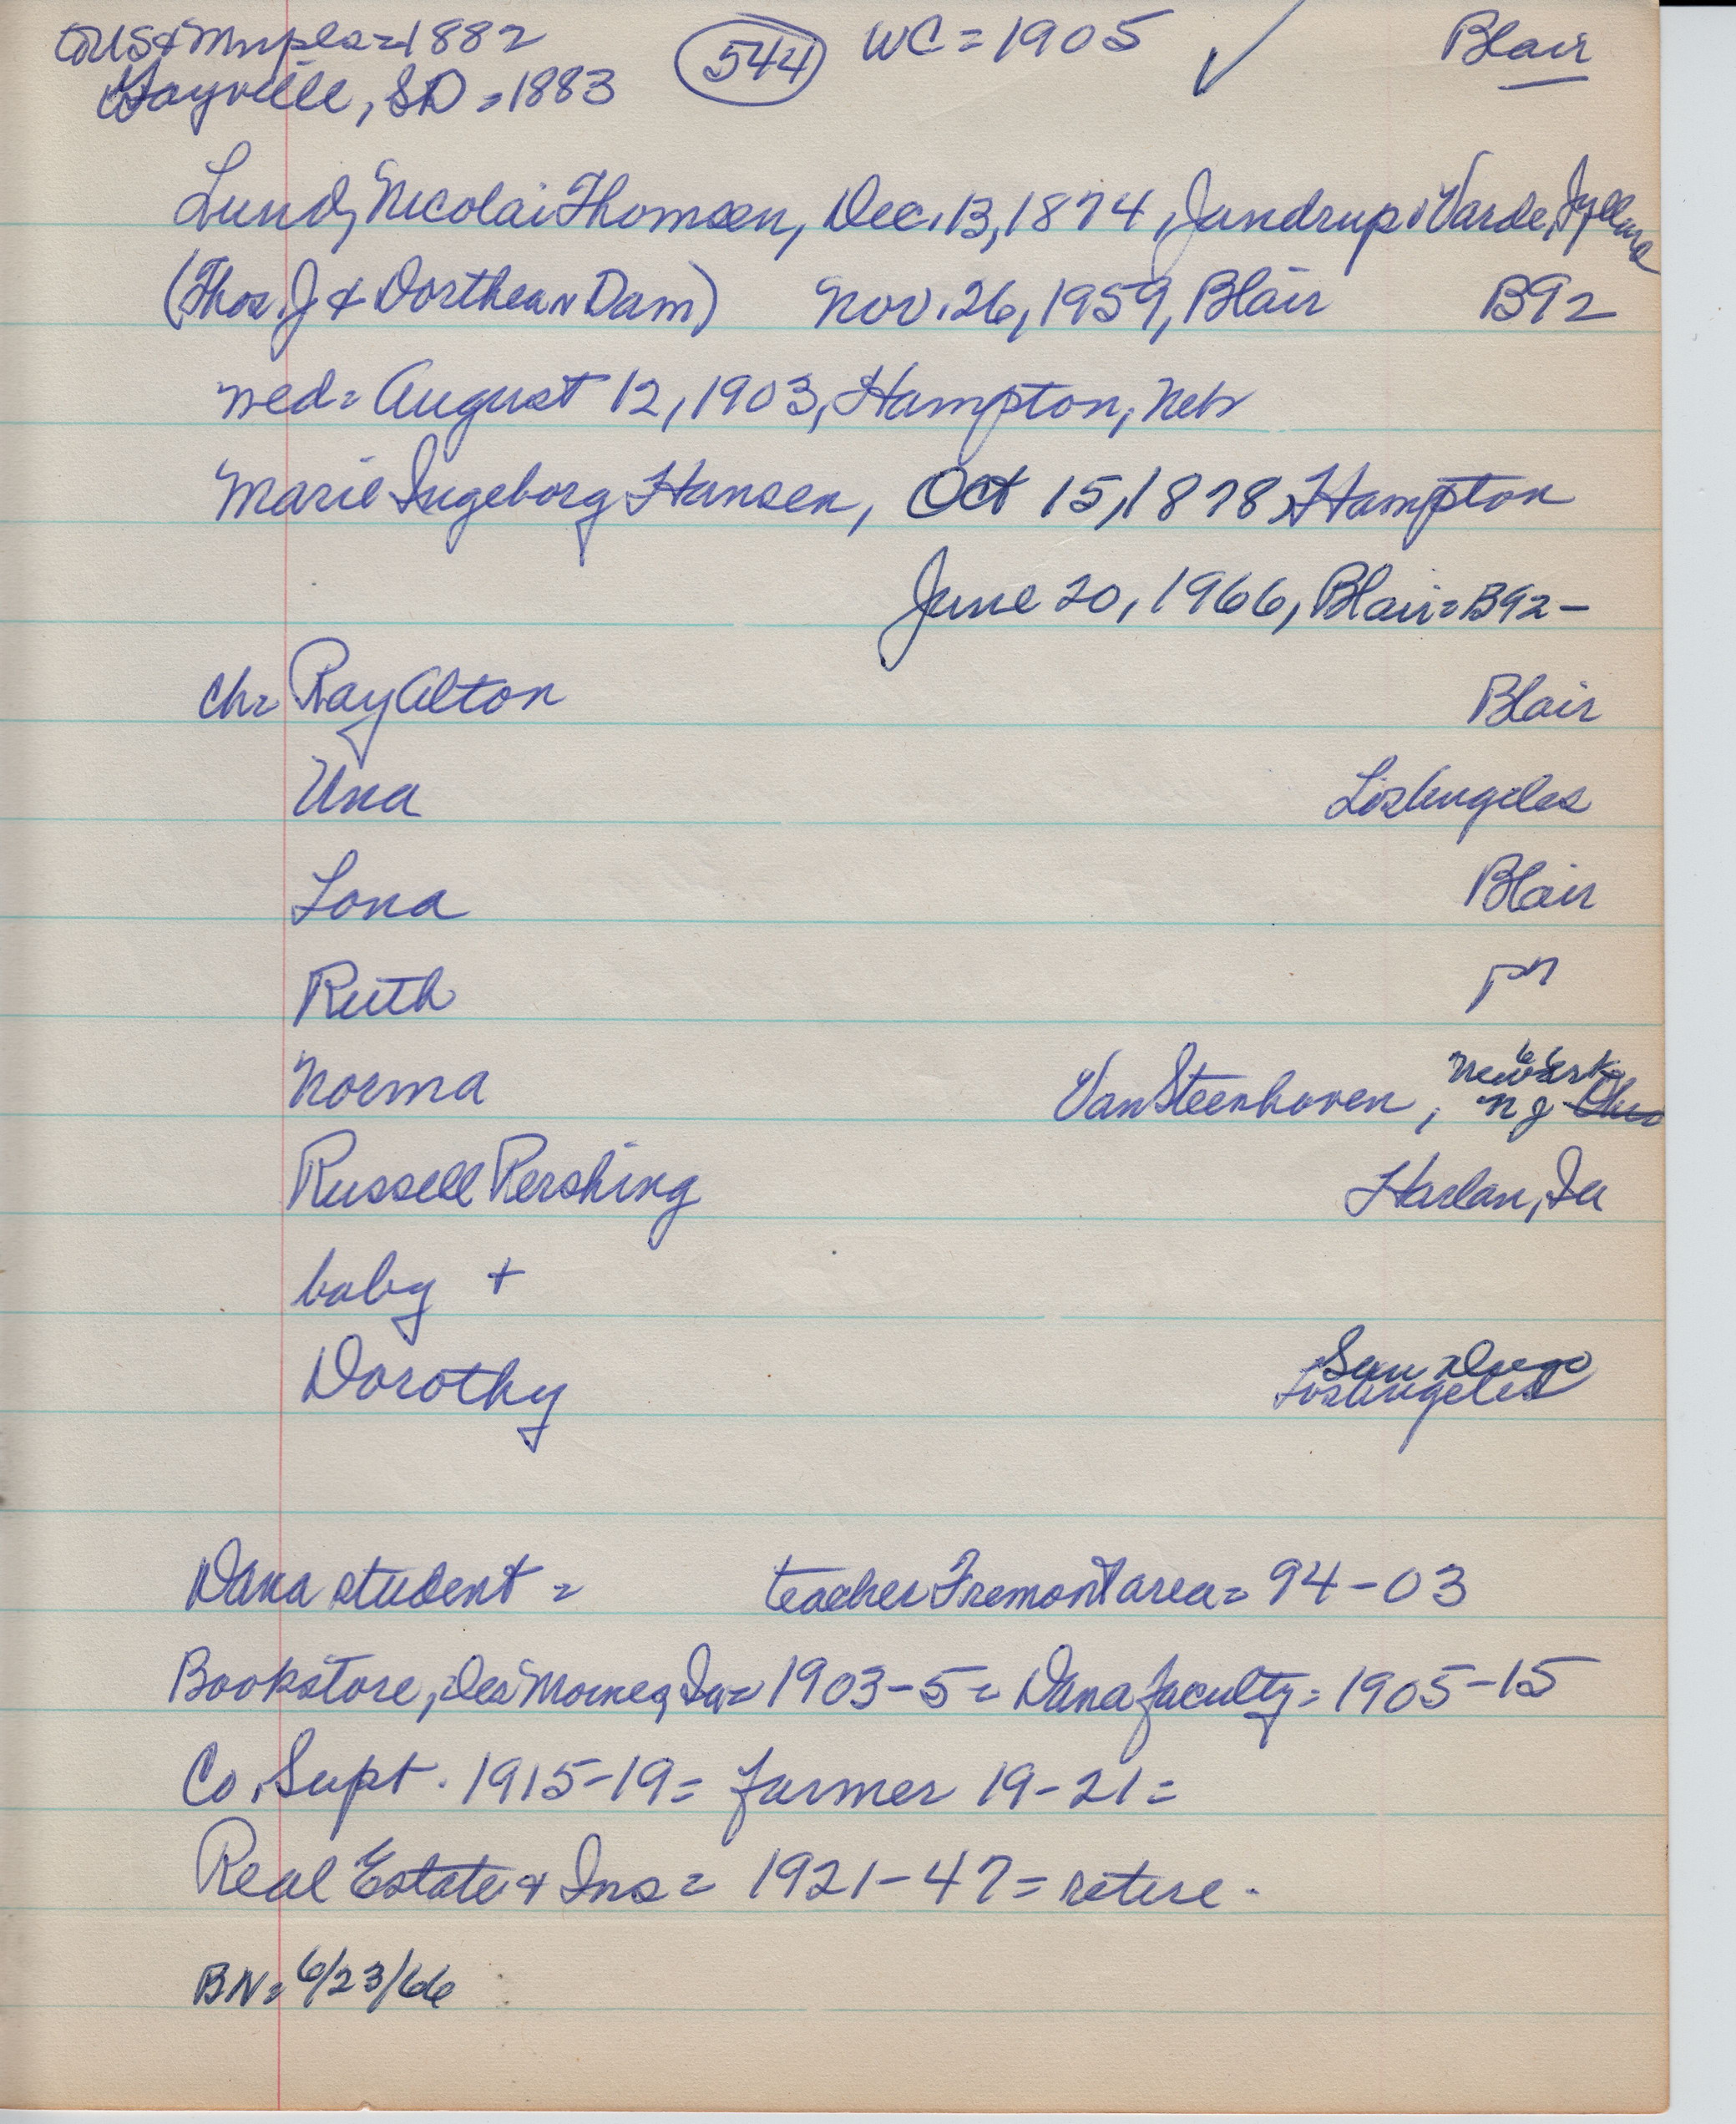 US & Mnpls = 1882 (544) WC = 1905 ✓ Blair
Gayville, SD = 1883
Lund, Nicolai Thomsen, Dec. 13, 1874, Jandrup, Varde, Jylland
(Thos. J & Dorthea N Dam) Nov. 26, 1959, Blair B92
med = August 12, 1903, Hampton, Neb
Marie Ingeborg Hansen, Oct 15, 1878, Hampton
June 20, 1966, Blair = B92 -
Ch = Ray Alton Blair
Una Los Angeles
Lona Blair
Ruth "
Norma Van Steenhoven, Newark NJ Ohio
Russell Pershing Harlan, Ia
baby +
Dorothy San Diego Los Angeles
Dana student = teacher Fremont area = 94-03
Bookstore, Des Moines, Ia = 1903-5 = Dana faculty = 1905-15
Co. Supt. 1915-19 = farmer 19-21 =
Real Estate & Ins = 1921-47 = retire.
BN = 6/23/66